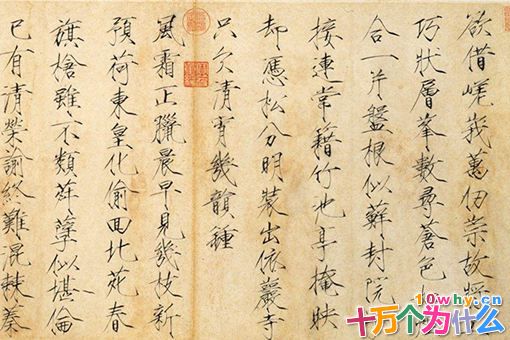 欲借嵯峩萬仞崇故將
巧狀層峯數尋蒼色
合一片盤根似蘚封院
接連常藉竹池亭掩映
却憑松分明裝出依巖寺
只欠清宵幾韻鍾
風霜正臘晨早見幾枝新
預荷東皇化偷回北苑春
旗槍雖不類荈孽似堪倫
已有清榮諭終難混棘蓁
10why.cn
十万个为什么